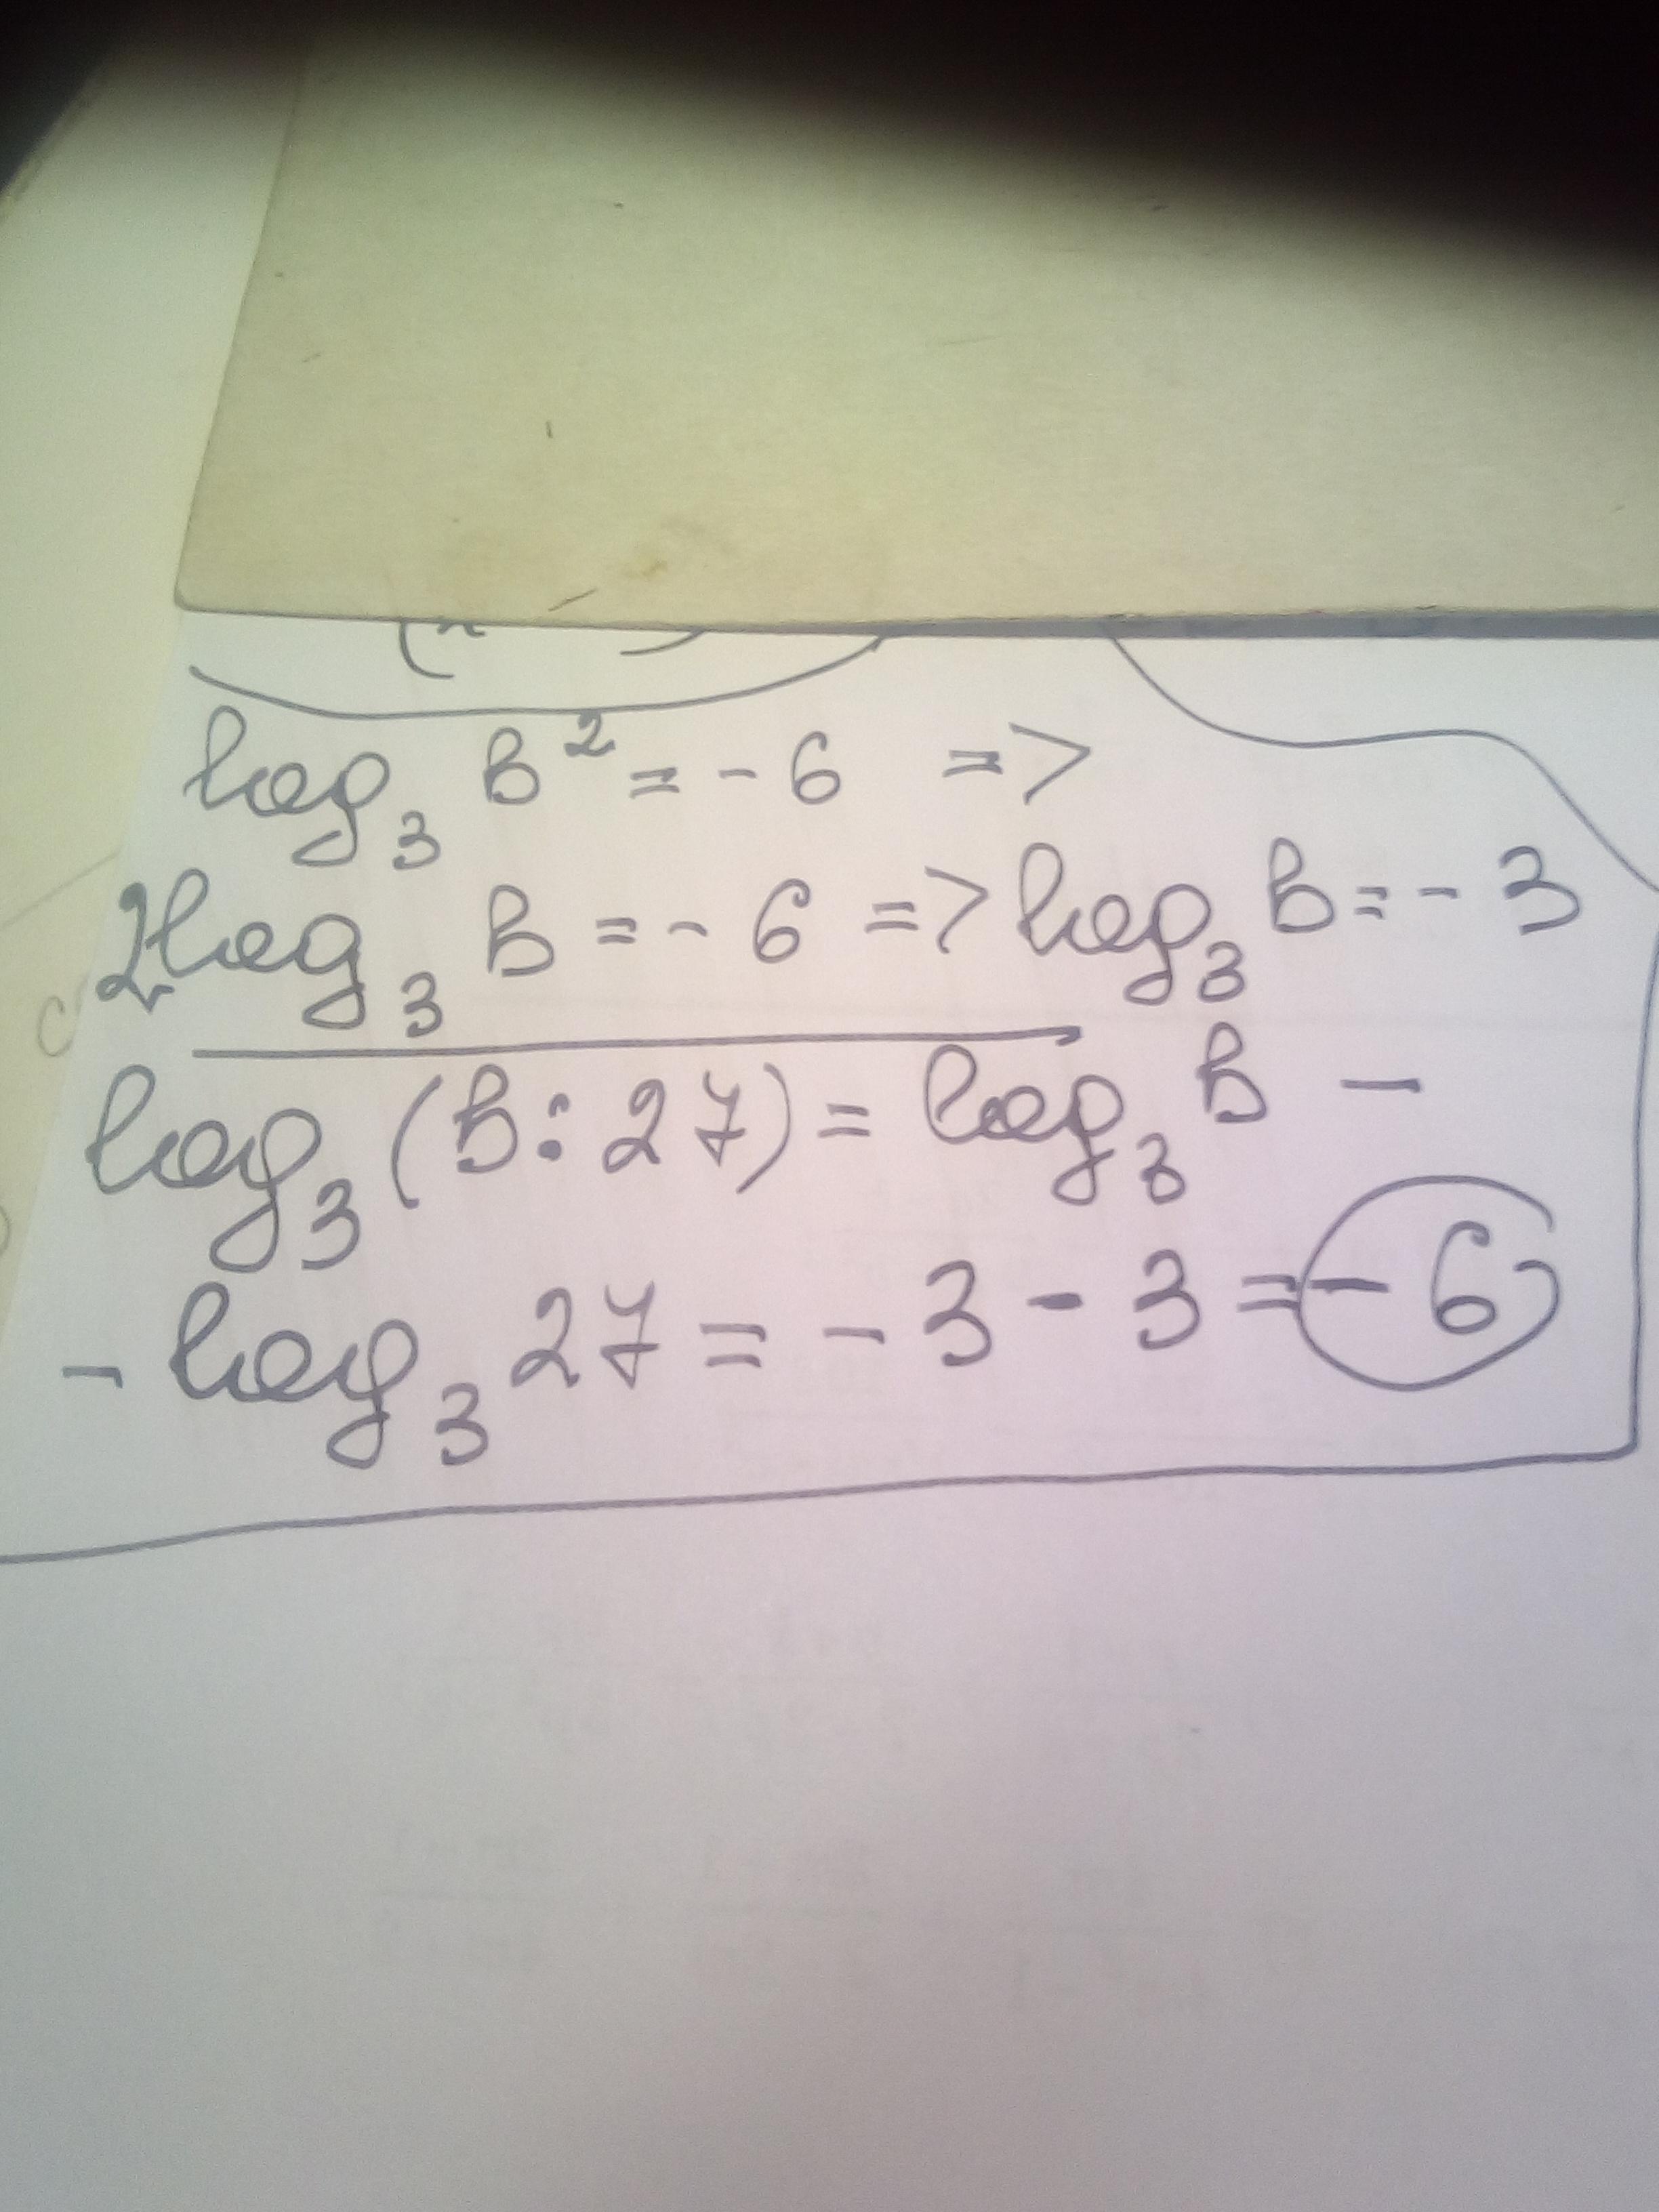 log₃ B² = - 6 =>
2log₃ B = - 6 => log₃ B = - 3
log₃ (B : 27) = log₃ B -
- log₃ 27 = - 3 - 3 = - 6